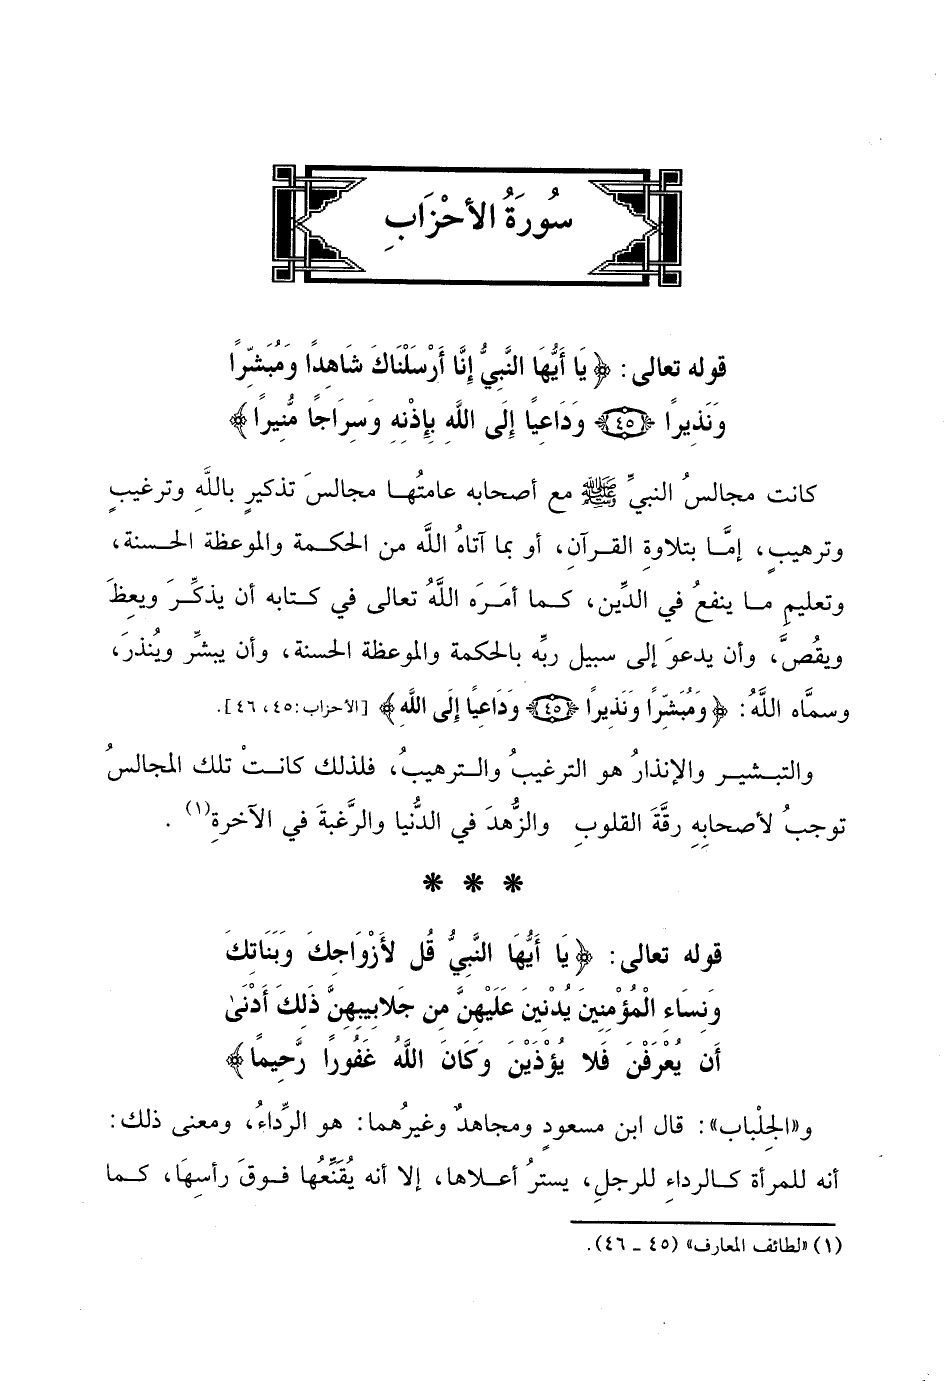 سُورَةُ الأحْزَابِ
قوله تعالى: ﴿يَا أَيُّهَا النَّبِيُّ إِنَّا أَرْسَلْنَاكَ شَاهِدًا وَمُبَشِّرًا
وَنَذِيرًا ﴿٤٥﴾ وَدَاعِيًا إِلَى اللَّهِ بِإِذْنِهِ وَسِرَاجًا مُّنِيرًا﴾
كانت مجالسُ النبيِّ ﷺ مع أصحابه عامتُها مجالسَ تذكيرٍ باللَّهِ وترغيبٍ
وترهيبٍ، إمَّا بتلاوةِ القرآنِ، أو بما آتاهُ اللَّه من الحكمة والموعظة الحسنة،
وتعليمِ ما ينفعُ في الدِّين، كما أمَرَه اللَّهُ تعالى في كتابه أن يذكِّرَ ويعظَ
ويقُصَّ، وأن يدعوَ إلى سبيل ربِّه بالحكمة والموعظة الحسنة، وأن يبشِّر ويُنذرَ،
وسمَّاه اللَّهُ: ﴿وَمُبَشِّرًا وَنَذِيرًا ﴿٤٥﴾ وَدَاعِيًا إِلَى اللَّهِ﴾ [الأحزاب:٤٥، ٤٦].
والتبشير والإنذارُ هو الترغيبُ والترهيبُ، فلذلك كانتْ تلك المجالسُ
توجبُ لأصحابِهِ رقَّةَ القلوبِ والزُّهدَ في الدُّنيا والرَّغبةَ في الآخرةِ(١).
* * *
قوله تعالى: ﴿يَا أَيُّهَا النَّبِيُّ قُل لأَزْوَاجِكَ وَبَنَاتِكَ
وَنِسَاءِ الْمُؤْمِنِينَ يُدْنِينَ عَلَيْهِنَّ مِن جَلابِيبِهِنَّ ذَلِكَ أَدْنَىٰ
أَن يُعْرَفْنَ فَلا يُؤْذَيْنَ وَكَانَ اللَّهُ غَفُورًا رَّحِيمًا﴾
و«الجِلْباب»: قال ابن مسعودٍ ومجاهدٌ وغيرُهما: هو الرِّداءُ، ومعنى ذلك:
أنه للمرأة كالرداءِ للرجلِ، يسترُ أعلاها، إلا أنه يُقنِّعُها فوقَ رأسِهَا، كما
(١) «لطائف المعارف» (٤٥ - ٤٦).